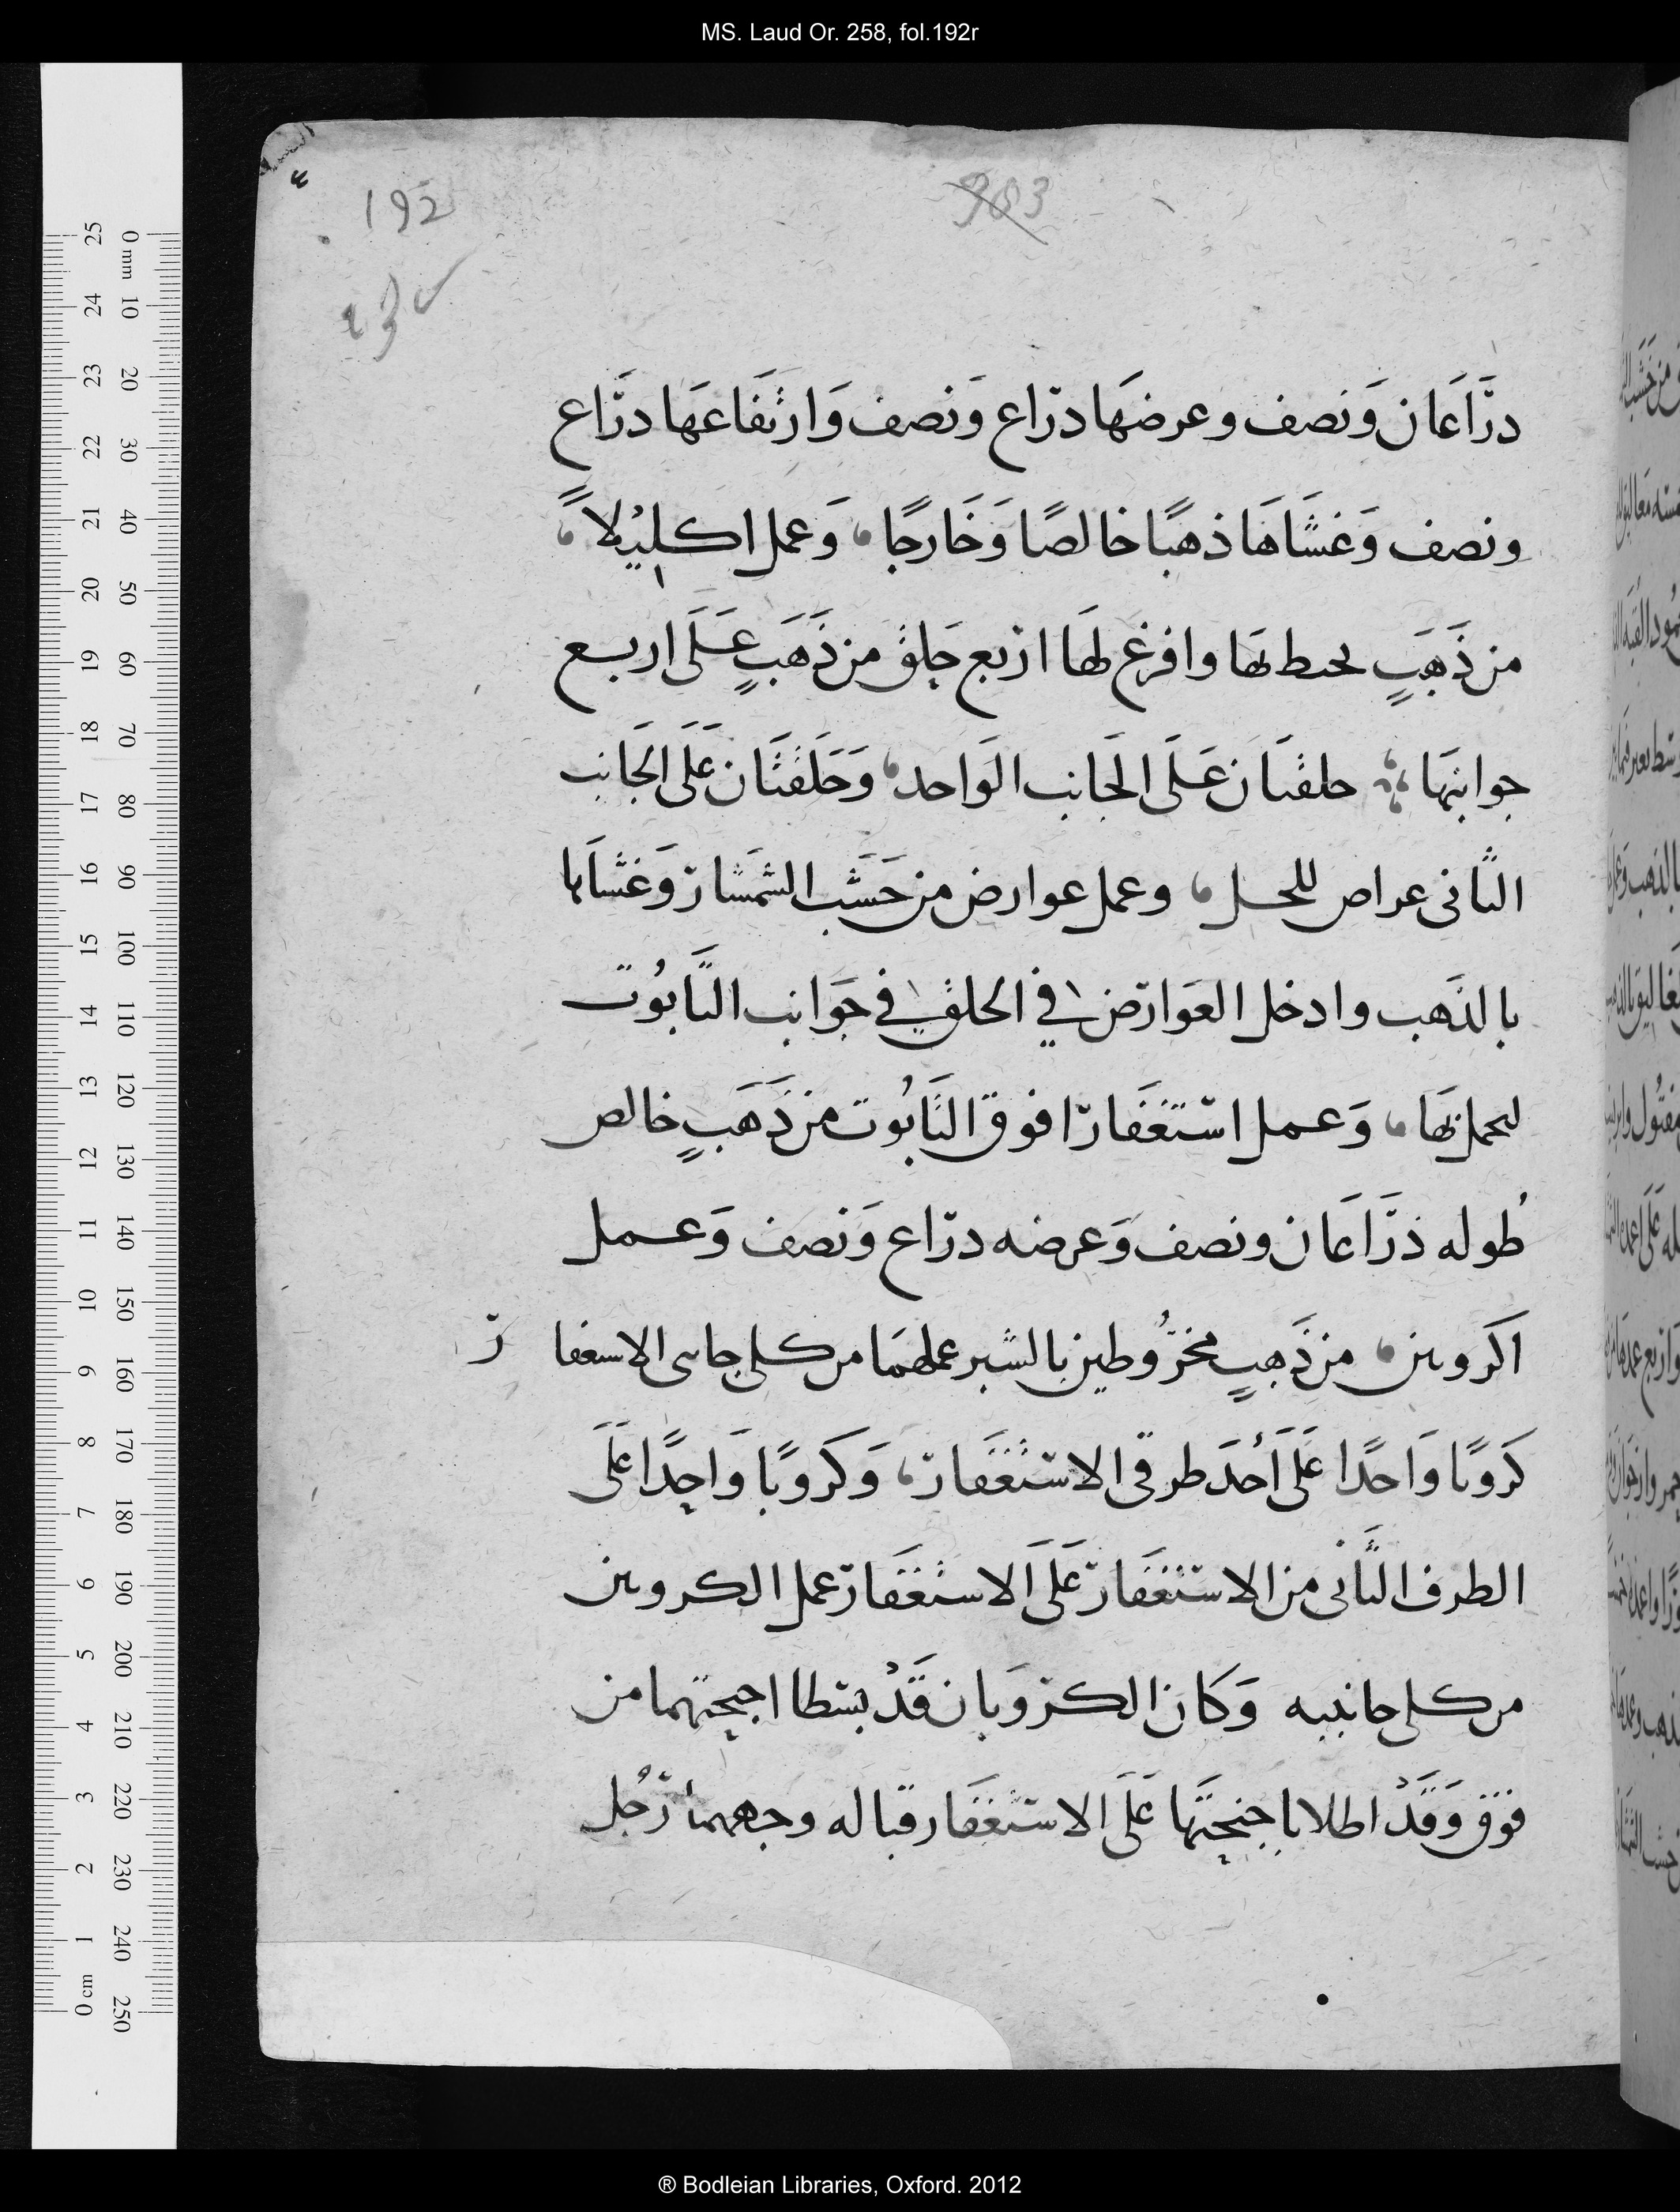 MS. Laud Or. 258, fol.192r
192
303
درَّاعَان وَنصف وعرضهَا درّاع وَنصف وَارتفَاعهَا درَّاع
ونصف وَغشَّاهَا ذهبًا خالصًا وَخَارجًا، وَعمل اكليْلاً،
من ذَهَبٍ يحيط بهَا وافرغ لهَا اربع حلق من ذَهَبٍ عَلَى اربع
جوانبهَا ؛ حلقتَان عَلَى الجَانب الوَاحد، وَحَلَقَتَان عَلَى الجَانب
الثَّانى عراض للحمل، وعمل عوارض من خَشَب الشمشار وَغشَاها
بالذَهب وادخل العَوارض في الحلق في جَوانب التَّابُوت
ليحمل بهَا، وَعمل استغفَارًا فوق التَّابُوت من ذَهَبٍ خالص
طُوله ذرَاعَان ونصف وَعرضه درّاع وَنصف وَعمل
اكروبين، من ذَهبٍ مخرُوطين بالشبر عملهمَا من كل جانبى الاستغفار
كَروبًا وَاحدًا عَلَى أحدَ طرفى الاستغفَار، وَكَروبًا وَاحدًا عَلَى
الطرف الثَّانى من الاستغفَار عَلَى الاستغفَار عمل الكروبين
من كل جانبيه وَكَان الكروبَان قَدْ بسَطا اجنحتهما من
فوق وَقَدْ اظلا باجنحتهَا عَلَى الاستغفَار قباله وجههما رَجُل
® Bodleian Libraries, Oxford. 2012